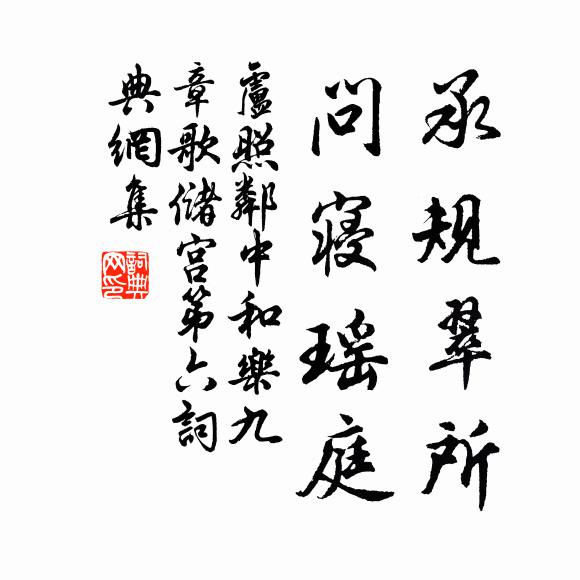 承規翠所
問寢瑤庭
盧照鄰中和樂九
章歌儲宮第六詞
典網集
詞典
网印